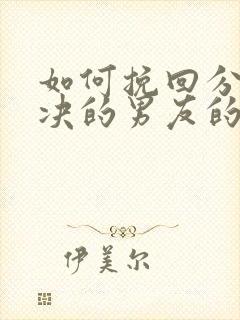 如何挽回分
决的男友的
伊美尔